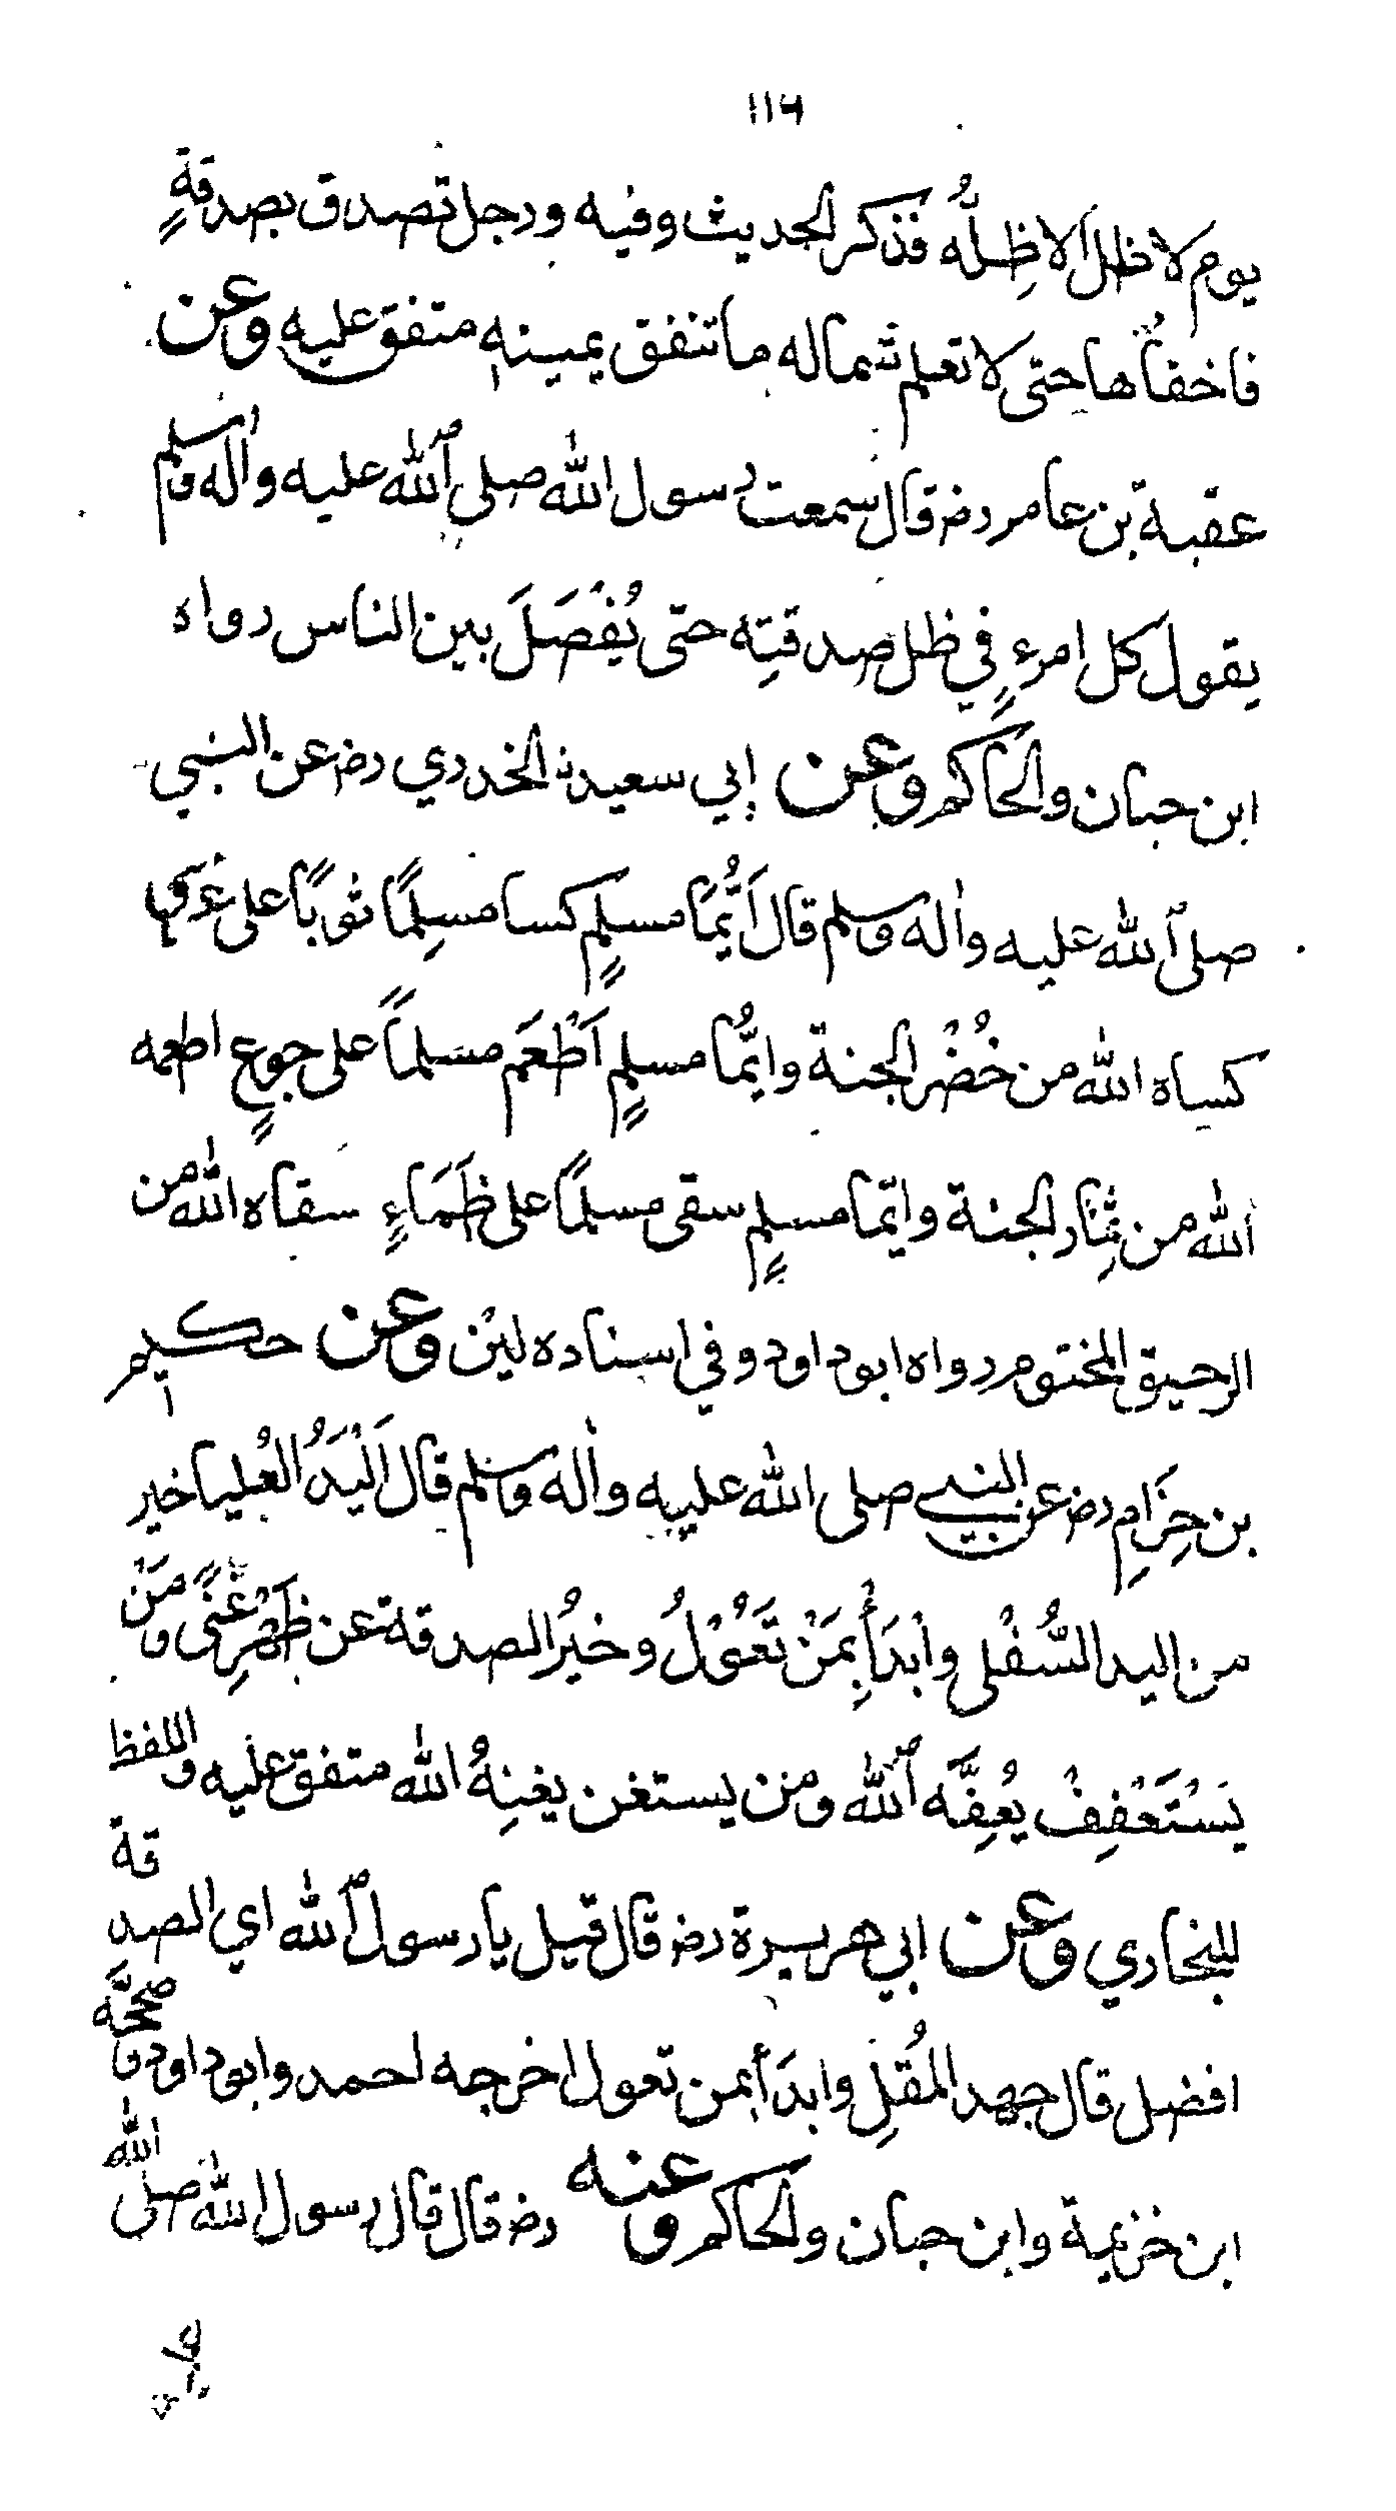 ١١٦
يوم لا ظل الا ظِلُّه فذكر الحديث وفيه ورجل تصدق بصدقةٍ
فاخفاها حتى لا تعلم شماله ما تنفق يمينه متفق عليه وعن
عقبة بن عامر رض قال سمعت رسول الله صلى الله عليه واله وسلم
يقول كل امرءٍ في ظل صدقتِه حتى يُفْصَلَ بين الناس رواه
ابن حبان والحاكم وعن ابي سعيد ن الخدري رض عن النبي
صلى الله عليه واله وسلم قال اَيُّمَا مسلمٍ كسا مسلِمًا ثوبًا على عُرْيٍ
كساه الله من خُضْرِ الجنة وايُّمَا مسلمٍ اَطْعَمَ مسلماً على جوعٍ اطعمه
الله من ثِمَار الجنة وايّما مسلمٍ سقى مسلمًا على ظَمَاءٍ سقاه الله من
الرحيق المختوم رواه ابوداود وفي اسناده لين وعن حكيم
بن حِزَامٍ رض عن النبي صلى الله عليه واله وسلم قال اَلْيَدُ العُليا خير
من اليد السُّفْلى وابْدَأْ بِمَنْ تَعُوْلُ وخيرُ الصدقة عن ظَهْرِ غِنًى ومَنْ
يَسْتَعْفِفْ يُعِفَّه الله ومن يستغن يغنِهُ الله متفق عليه واللفظ
للبخاري وعن ابي هريرة رض قال قيل يا رسول الله اي الصدقة
افضل قال جهد المُقِلِّ وابدَأ بمن تعول اخرجه احمد وابوداود وصححَّه
ابن خزيمة وابن حبان والحاكم وعنه رض قال قال رسول الله صلى الله